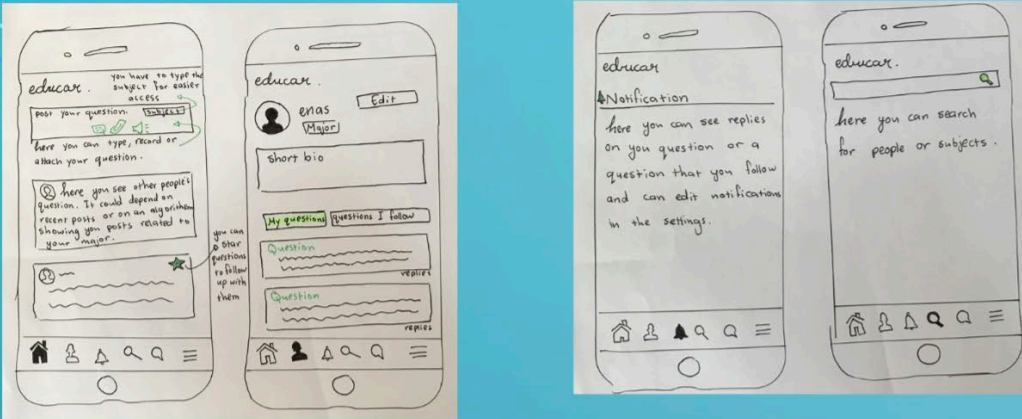 educar.
you have to type the
subject for easier
access
post your question.
subject
here you can type, record or
attach your question.
here you see other people's
question. It could depend on
recent posts or on an algorithem
showing you posts related to
your major.
you can
star
questions
to follow
up with
them
educar.
enas
Edit
Major
short bio
My questions
questions I follow
Question
replies
Question
replies
educar.
Notification
here you can see replies
on you question or a
question that you follow
and can edit notifications
in the settings.
educar.
here you can search
for people or subjects.